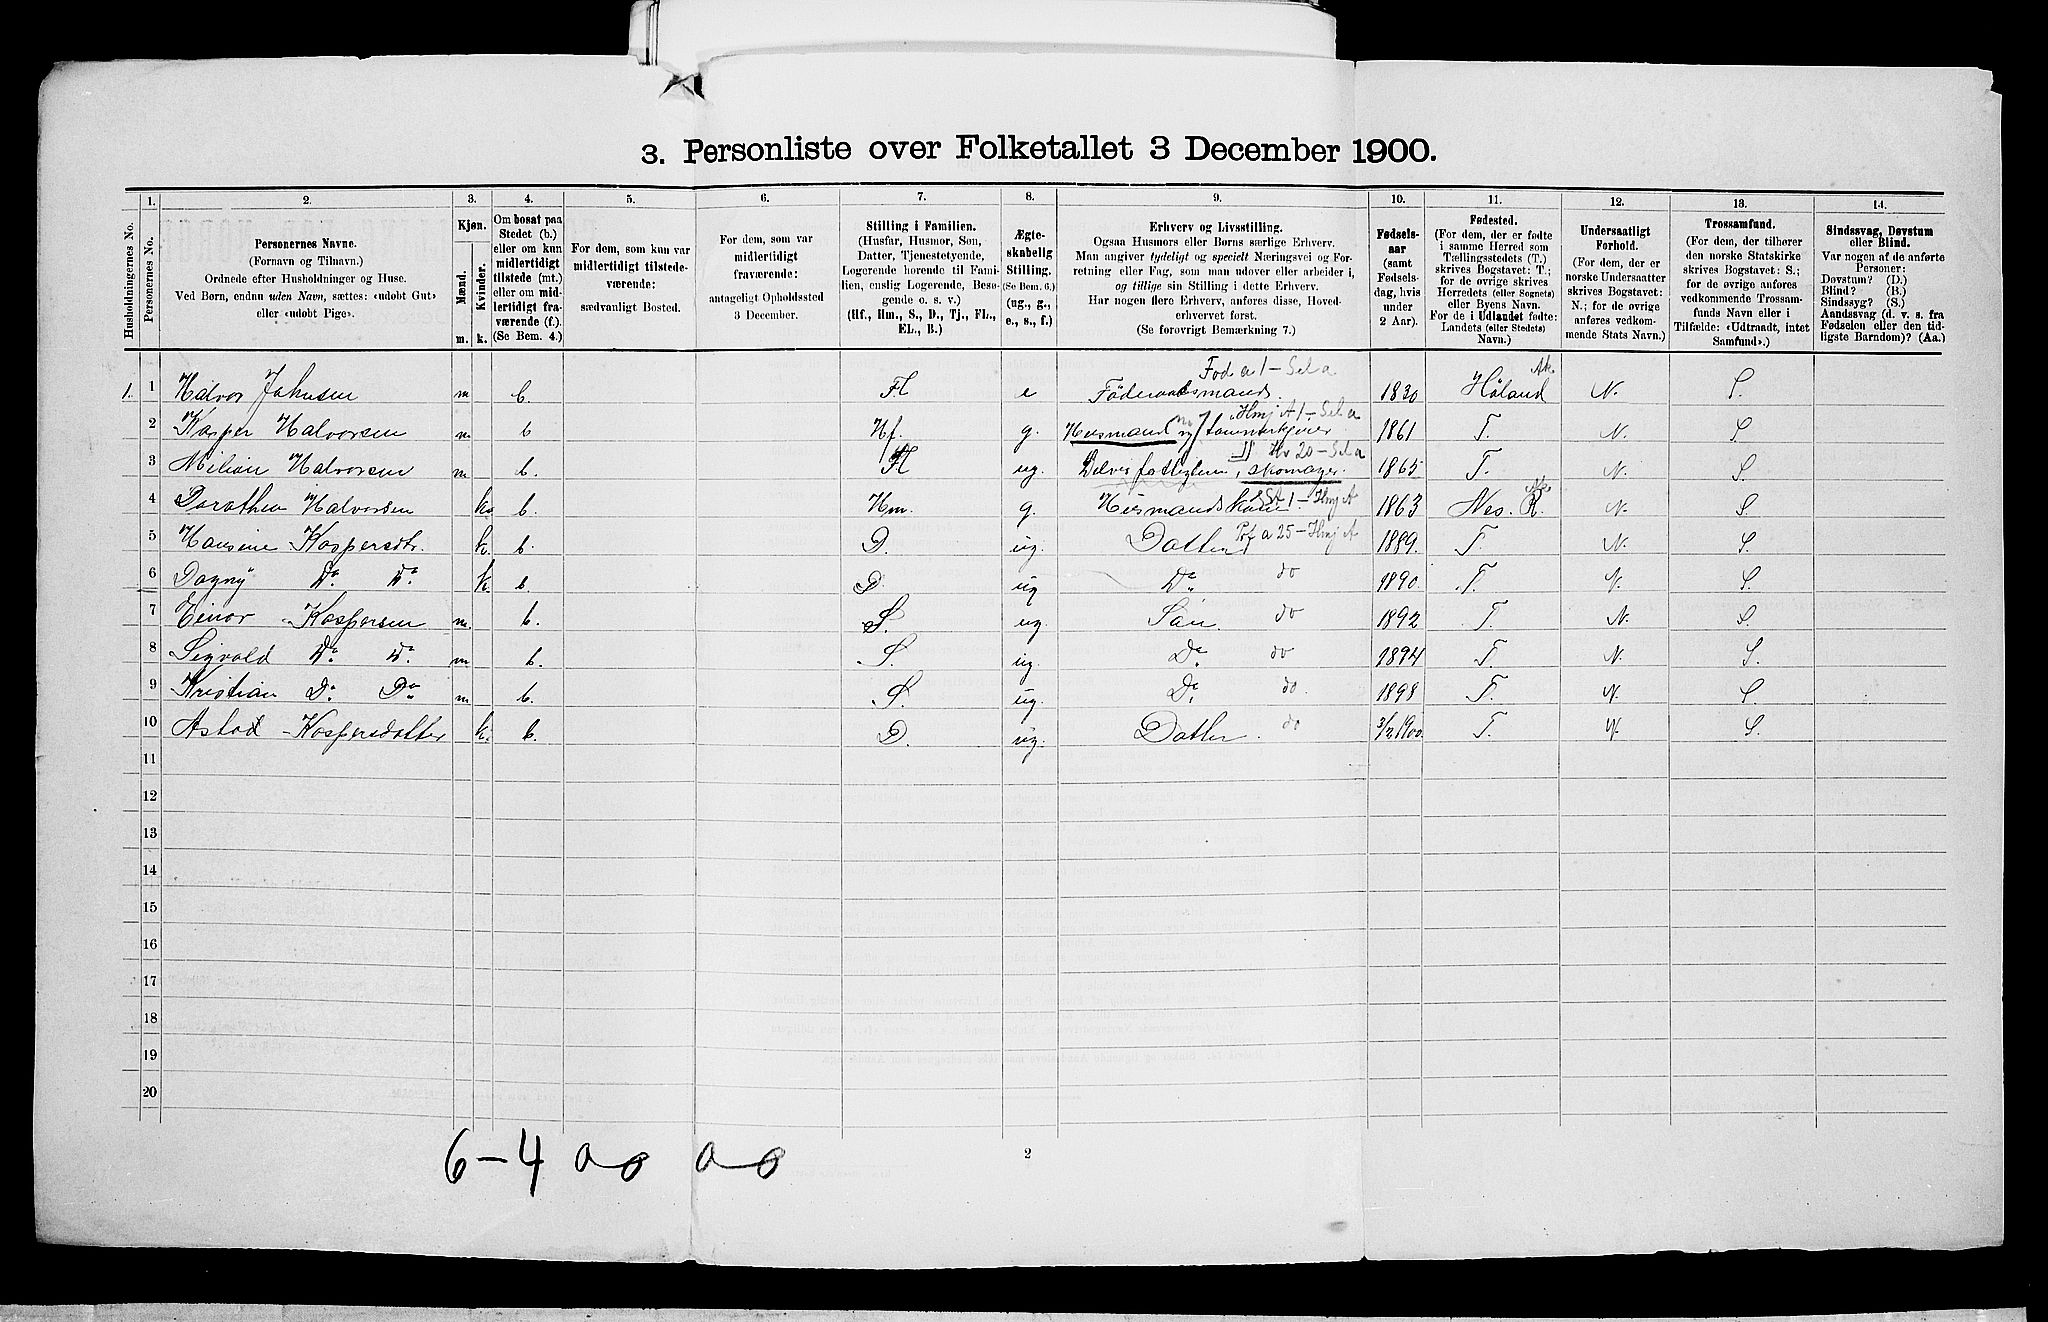 3. Personliste over Folketallet 3 December 1900.
Husholdningernes No.
1.
Personernes No.
2.
Personernes Navne.
(Fornavn og Tilnavn.)
Ordnede efter Husholdninger og Huse.
Ved Børn, endnu uden Navn, sættes: «udøbt Gut»
eller «udøbt Pige».
3.
Kjøn.
Mænd.
Kvinder.
m. k.
4.
Om bosat paa
Stedet (b.)
eller om kun
midlertidigt
tilstede (mt.)
eller om mid-
lertidigt fra-
værende (f.)
(Se Bem. 4.)
5.
For dem, som kun var
midlertidigt tilstede-
værende:
sædvanligt Bosted.
6.
For dem, som var
midlertidigt
fraværende:
antageligt Opholdssted
3 December.
7.
Stilling i Familien.
(Husfar, Husmor, Søn,
Datter, Tjenestetyende,
Logerende hørende til Fami-
lien, enslig Logerende, Besø-
gende o. s. v.)
(Hf., Hm., S., D., Tj., FL.,
EL., B.)
8.
Ægte-
skabelig
Stilling.
(Se Bem. 6.)
(ug., g.,
e., s., f.)
9.
Erhverv og Livsstilling.
Ogsaa Husmors eller Børns særlige Erhverv.
Man angiver tydeligt og specielt Næringsvei og For-
retning eller Fag, som man udøver eller arbeider i,
og tillige sin Stilling i dette Erhverv.
Har nogen flere Erhverv, anføres disse, Hoved-
erhvervet først.
(Se forøvrigt Bemærkning 7.)
10.
Fødsels-
aar
(samt
Fødsels-
dag, hvis
under
2 Aar).
11.
Fødested.
(For dem, der er fødte
i samme Herred som
Tællingsstedets (T.)
skrives Bogstavet: T.;
for de øvrige skrives
Herredets (eller Sognets)
eller Byens Navn.
For de i Udlandet fødte:
Landets (eller Stedets)
Navn.)
12.
Undersaatligt
Forhold.
(For dem, der er
norske Undersaatter
skrives Bogstavet:
N.; for de øvrige
anføres vedkom-
mende Stats Navn.)
13.
Trossamfund.
(For dem, der tilhører
den norske Statskirke
skrives Bogstavet: S.;
for de øvrige anføres
vedkommende Trossam-
funds Navn eller i
Tilfælde: «Udtraadt, intet
Samfund».)
14.
Sindssvag, Døvstum
eller Blind.
Var nogen af de anførte
Personer:
Døvstum? (D.)
Blind? (B.)
Sindssyg? (S.)
Aandssvag (d. v. s. fra
Fødselen eller den tid-
ligste Barndom)? (Aa.)
1. 1 Halvor Johnsen m b. Fl e Föderaadsmand Fod a 1 - Sel a 1830 Høland Ak. N. S.
2 Kasper Halvorsen m b Hf. g. Husmand Hmj A 1 - Sel a 1861 T. N. S
3 Milian Halvorsen m b. Fl ug. skomager. Hv 20 - Sel a 1865 T. N. S
4 Dorothea Halvorsen k. b. Hm. g. Husmands kone 1 - Hmj A 1863 Nes. R. Ak N. S
5 Hansine Kaspersdtr. k. b. D. ug. Datter a 25 - Hmj A 1889. T. N. S
6 Dagny Do. Do. k. b. D. ug Do. do 1890. T. N. S.
7 Einar Kaspersen m. b. S. ug. Søn. do 1892 T. N. S.
8 Sigvald Do. Do. m. b. S. ug. Do. do 1894 T. N. S.
9 Kristian Do. Do. m b. S. ug. Do. do. 1898 T. N. S.
10 Astad Kaspersdatter k. b. D. ug. Datter. do 3/2 1900. T. N. S.
11
12
13
14
15
16
17
18
19
20
6-4
2